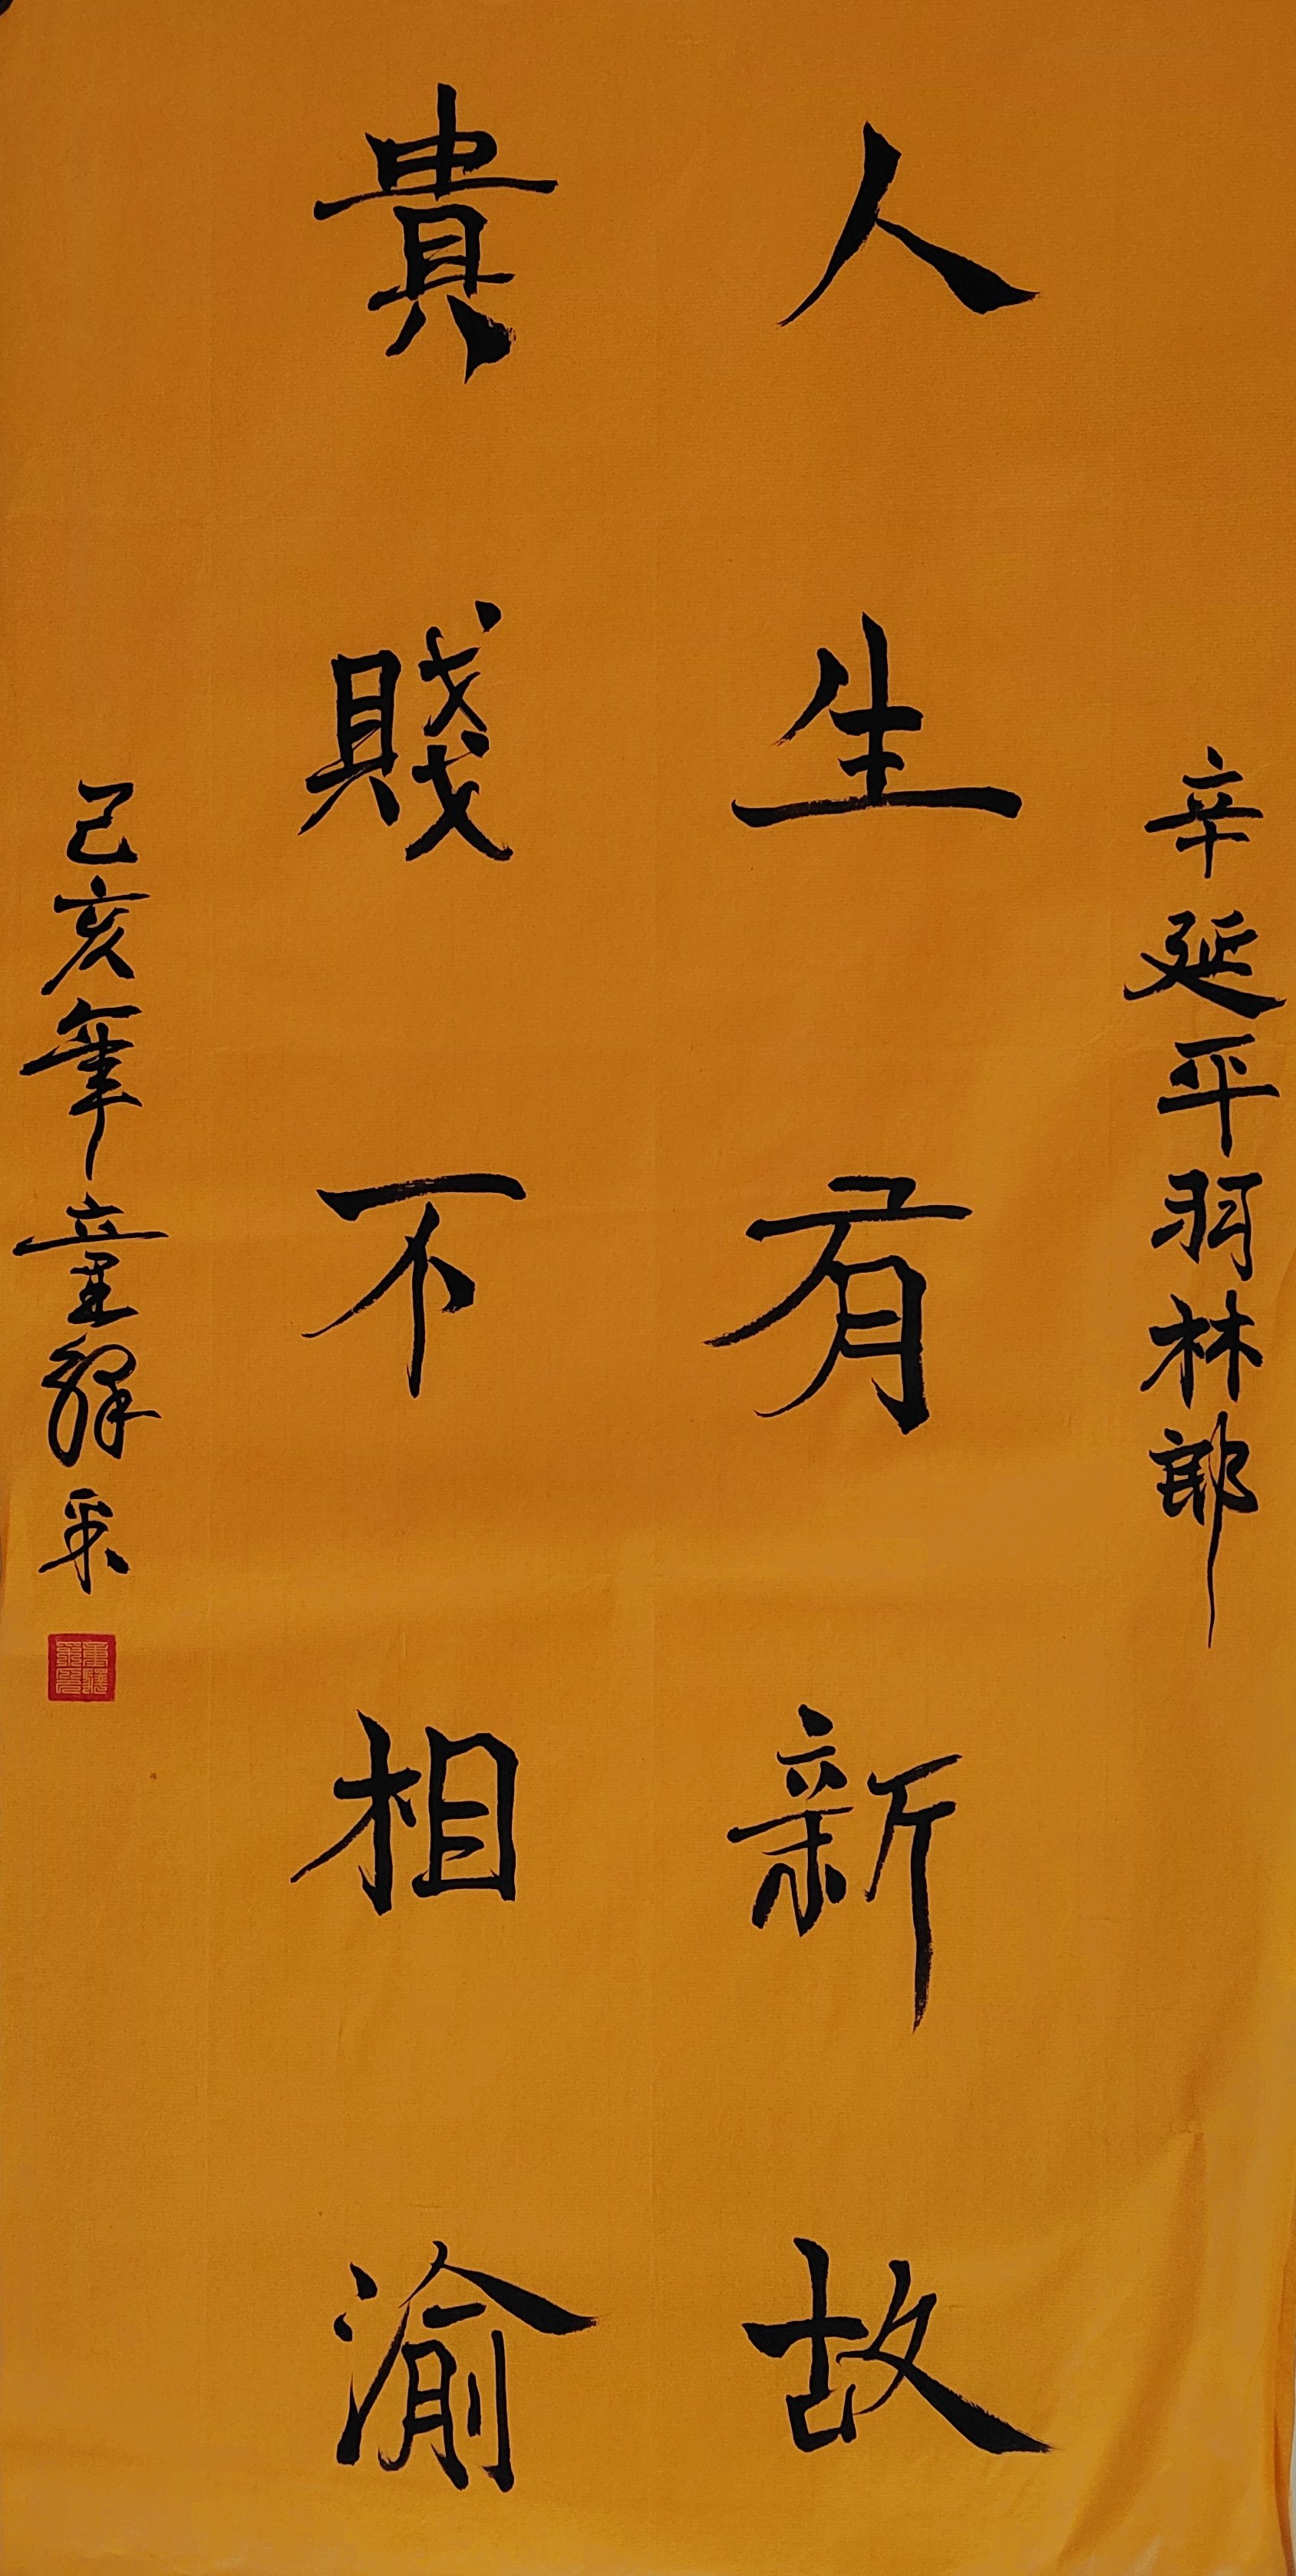 辛延平羽林郎
人生有新故
貴賤不相渝
己亥年童繹采